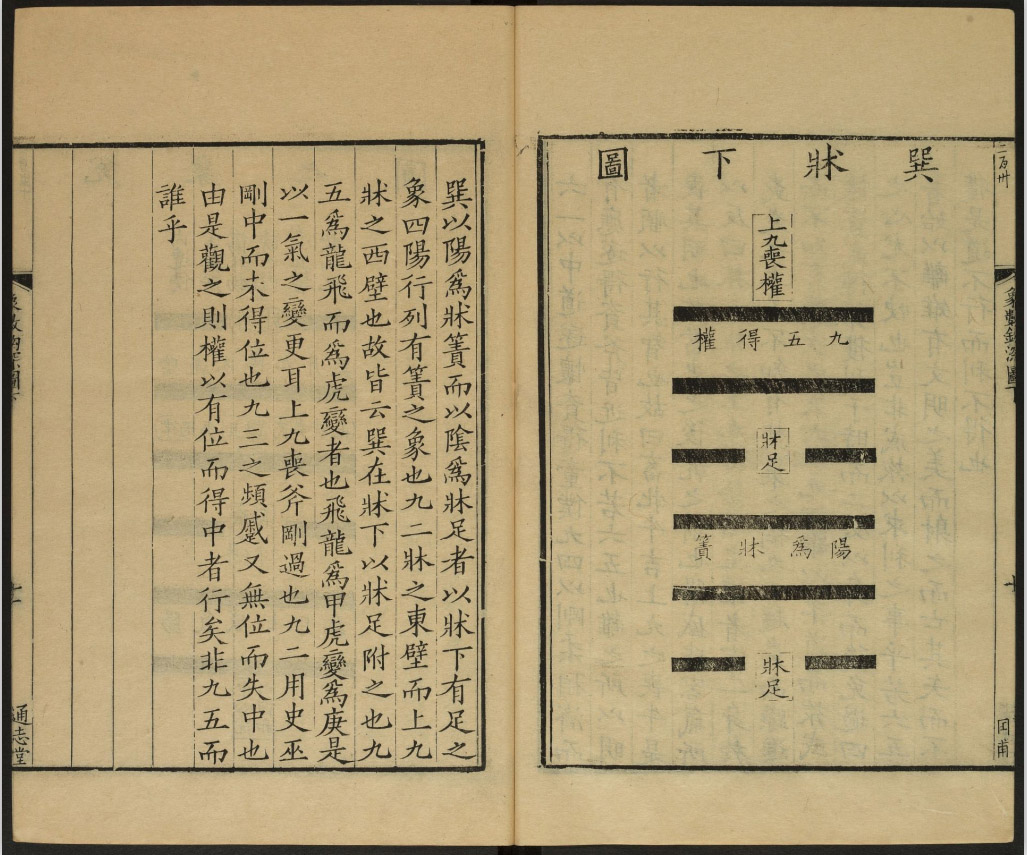 巽牀下圖
上九喪權
九五得權
牀足
陽爲牀簀
牀足
巽以陽爲牀簀而以陰爲牀足者以牀下有足之
象四陽行列有簀之象也九二牀之東壁而上九
牀之西壁也故皆云巽在牀下以牀足附之也九
五爲龍飛而爲虎變者也飛龍爲甲虎變爲庚是
以一氣之變更耳上九喪斧剛過也九二用史巫
剛中而未得位也九三之頻蹙又無位而失中也
由是觀之則權以有位而得中者行矣非九五而
誰乎
通志堂